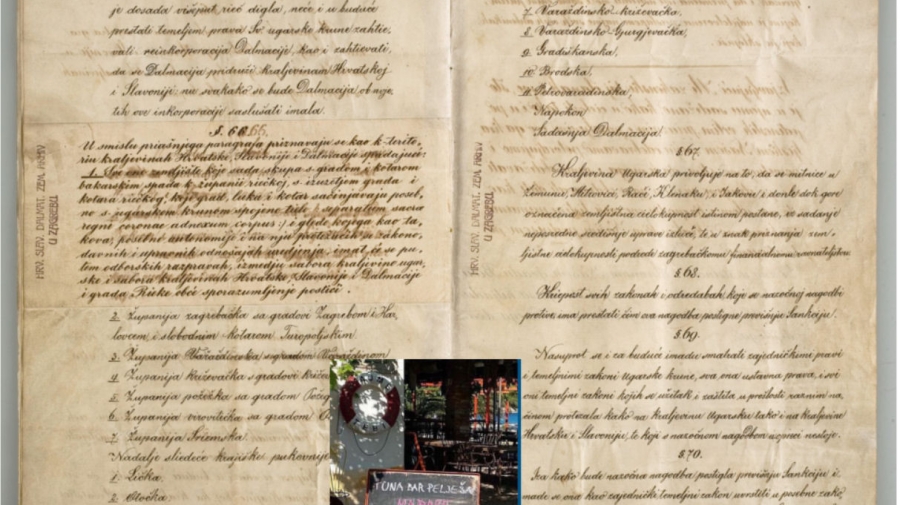 je dosada višeput rieč digla, neće i u buduće
prestati temeljem prava Sv. ugarske krune zahtie-
vati reinkorporaciju Dalmacije, kao i zahtievati,
da se Dalmacija pridruži kraljevinam Hrvatskoj
i Slavoniji: nu svakako se bude Dalmacija ob uvje-
tih ove inkorporacije saslušati imala.
§. 66.
U smislu priašnjega paragrafa priznavaju se kao k terito-
riu kraljevinah Hrvatske, Slavonije i Dalmacije spadajući:
1. Sve ono zemljište koje sada, skupa s gradom i kotarom
bakarskim spada k županii riečkoj, s izuzetjem grada i
kotara riečkog, koji grad, luka i kotar sačinjavaju poseb-
no s ugarskom krunom spojeno tielo (separatum sacrae
regni coronae adnexum corpus) i gledé kojega kao ta-
kova, posebne autonomije i na nju protežućih se zakono-
davnih i upravnih odnošajah
tem odborskih razpravah, izmedju sabora kraljevine ugar-
ske i sabora kraljevinah Hrvatske, Slavonije i Dalmacije
i grada Rieke obće sporazumljenje postići.
2. Županija zagrebačka sa gradovi Zagrebom i Kar-
lovcem i slobodnim kotarom Turopoljskim
3. Županija Varaždinska s gradom Varaždinom
4. Županija križevačka s gradovi
5. Županija požežka sa gradom
6. Županija virovitička sa gradom
7. Županija Sriemska.
Nadalje sliedeće krajičke pukovnije
1. Lička.
2. Otočka.
HRV. SLAV. DALMAT. ZEM. ARKIV
U ZAGREBU.
7. Varaždinsko-križevačka,
8. Varaždinsko-Gjurgjevačka,
9. Gradiškanska,
10. Brodska,
11. Petrovaradinska,
Napokon
Sadašnja Dalmacija.
§ 67.
Kraljevina Ugarska privoljuje na to, da se mitnice u
Zemunu, Mitrovici, Rači, Klenaku i Jakovu i donle dok gore
označena zemljištna cielokupnost istinom postane, uz sadanje
neposredno središnje uprave izluče, te u znak priznanja zem-
ljištne cielokupnosti podrede zagrebačkomu financialnomu ravnateljstvu.
§ 68.
Krijepost svih zakonah i odredabah, koje se naročnoj nagodbi
protive, ima prestati čim ova nagodba postigne previšnju Sankciju.
§ 69.
Nasuprot se i za buduće imadu smatrati zajedničkimi pravi
i temeljnimi zakoni Ugarske krune, sva ona ustavna prava, i svi
oni temeljni zakoni kojih se užitak i zaštita, u prošlosti
protezala kako na kraljevinu Ugarsku tako i na kraljevine
Hrvatsku i Slavoniju, te koji s naročnom nagodbom
§ 70.
Iza kako bude naročna nagodba postigla previšnju Sankciju i-
made se ona kao zajednički temeljni zakon uvrstiti u posebne zako-
HRV. SLAV. DALMAT. ZEM. ARKIV
U ZAGREBU.
TUNA BAR PELJEŠA